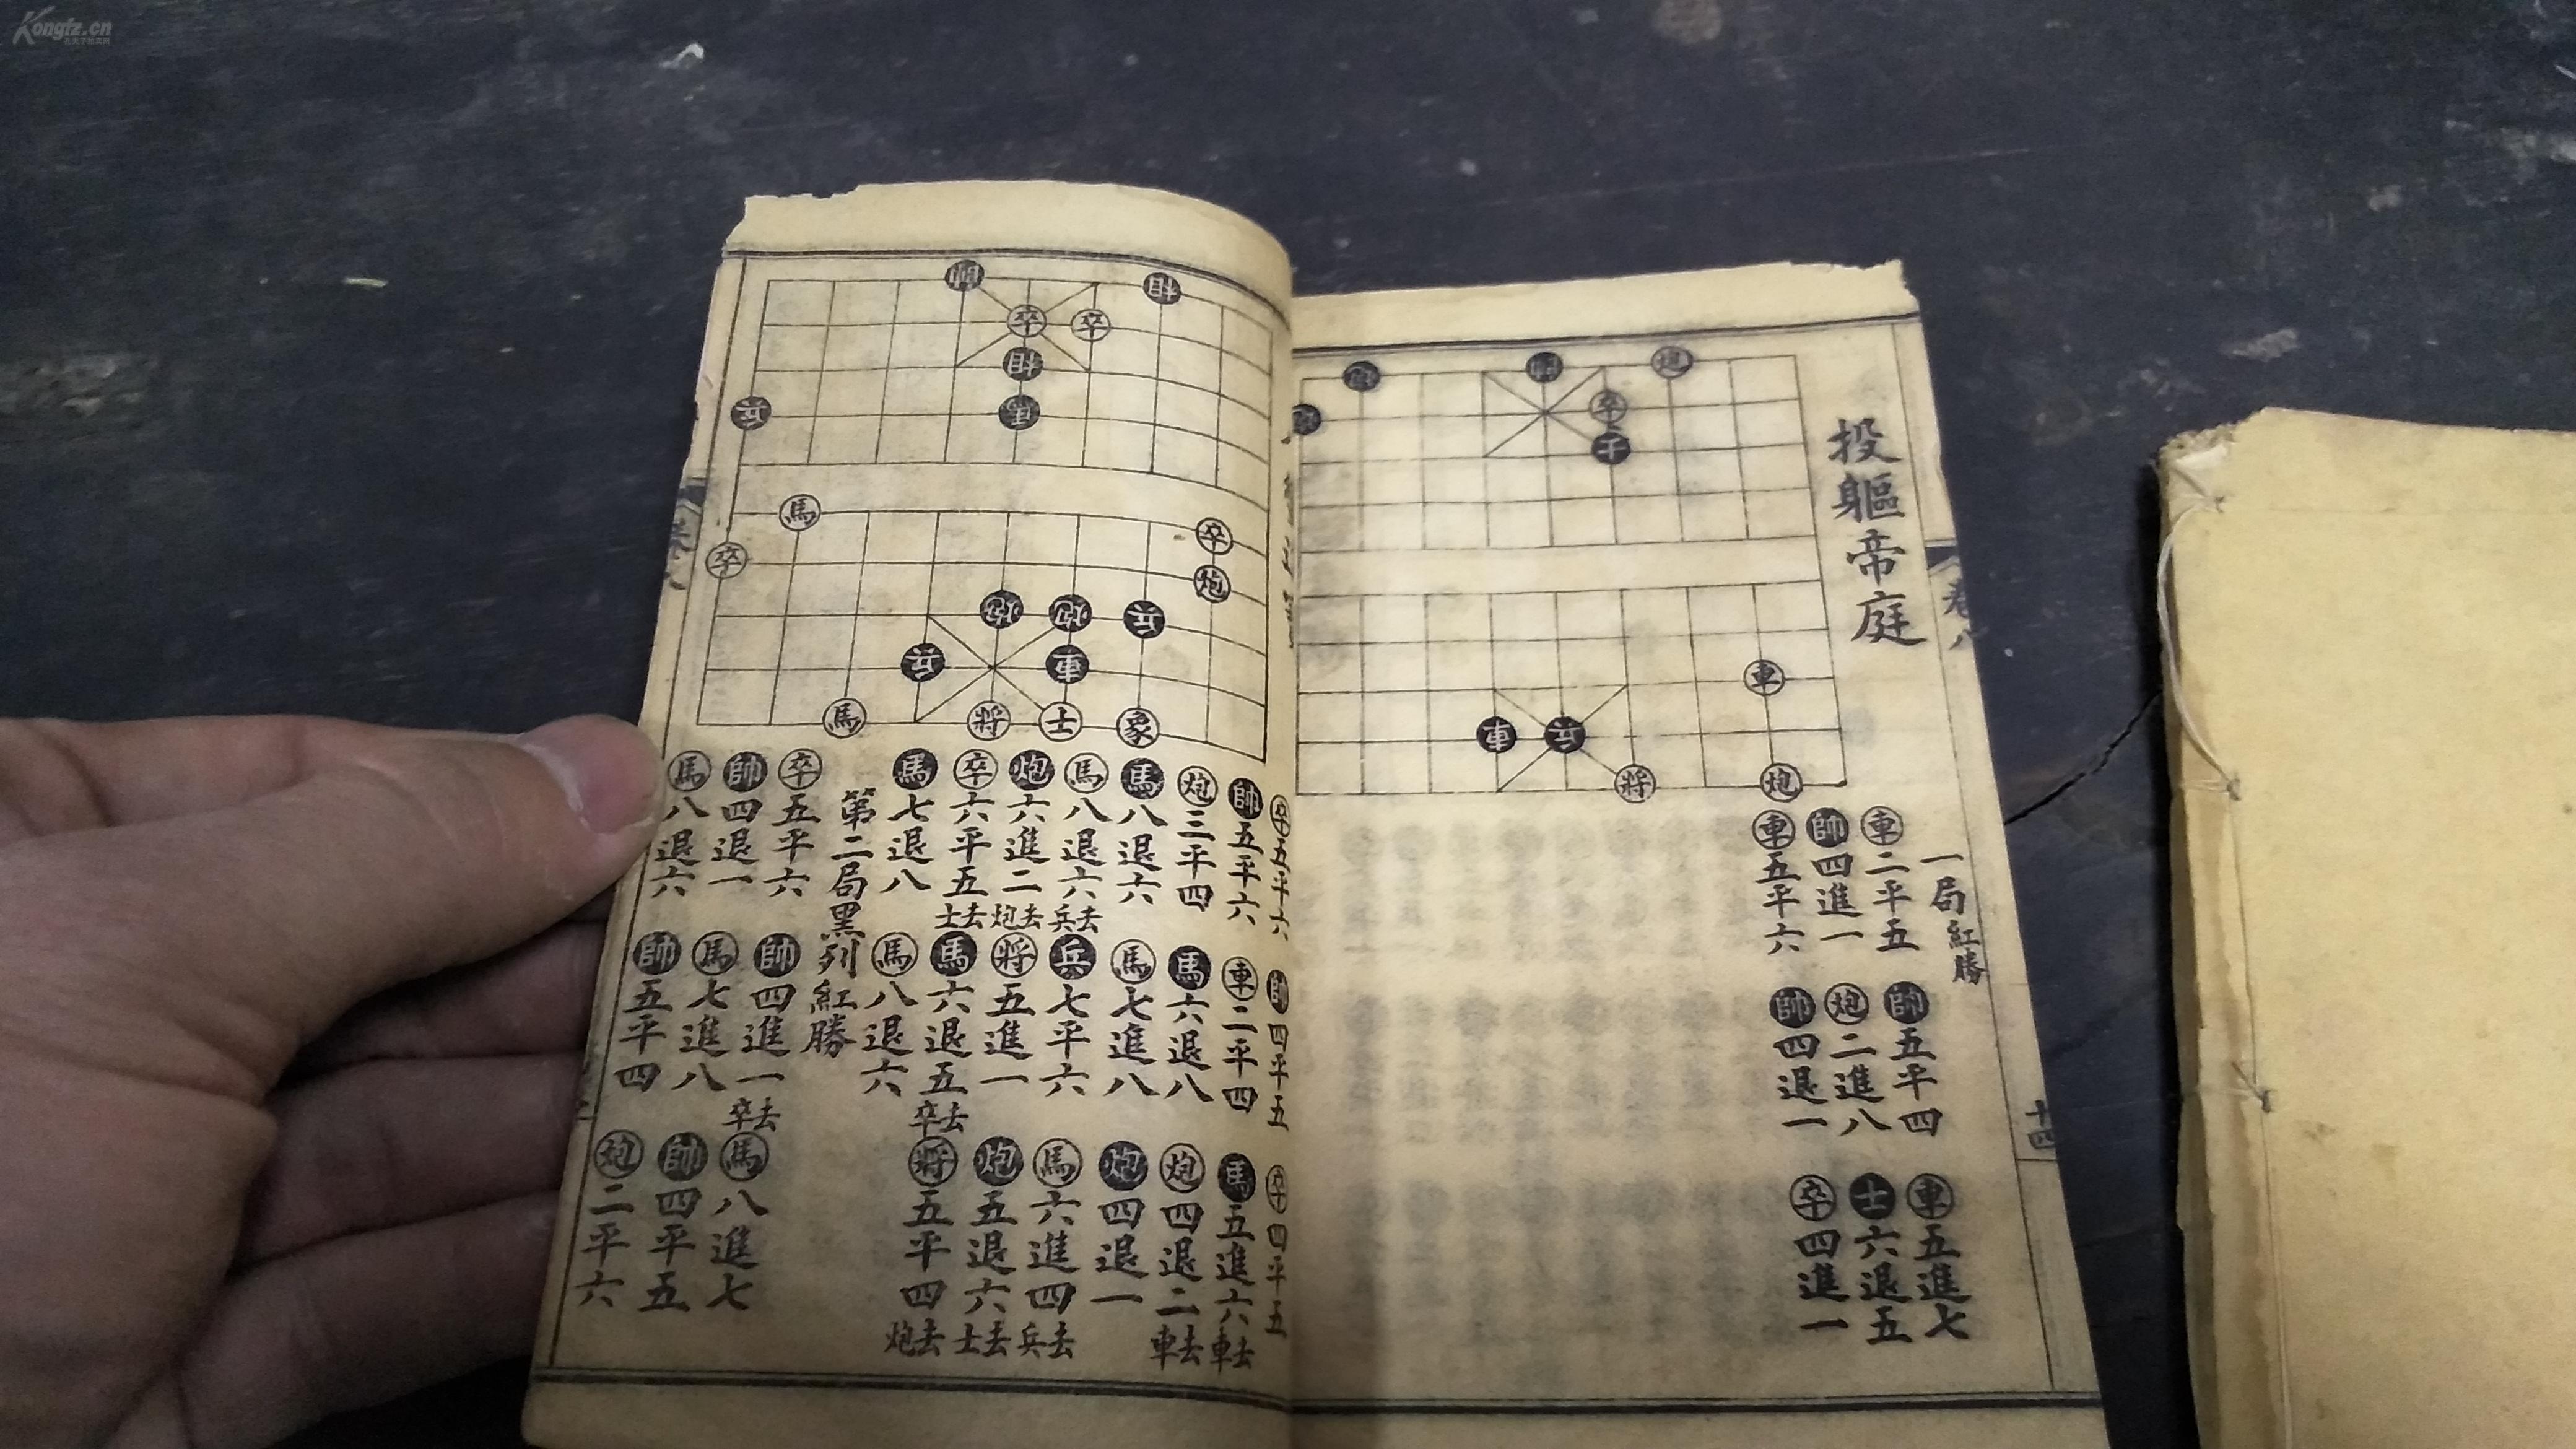 Kongfz.cn
投軀帝庭
卷八
十四
炮
帥
炮
卒
士
車
車
兵
將
炮
一局紅勝
車二平五
帥五平四
車五進七
帥四進一
炮二進八
士六退五
車五平六
帥四退一
卒四進一
帥
相
卒
卒
相
兵
馬
馬
卒
卒
炮
炮
炮
兵
兵
車
馬
將
士
象
卒五平六
帥四平五
卒四平五
帥五平六
車二平四
馬五進六車去
炮三平四
馬六退八
炮四退二車去
馬八退六
馬七進八
炮四退一
馬八退六兵去
兵七平六
馬六進四兵去
炮六進二炮去
將五進一
炮五退六士去
卒六平五士去
馬六退五卒去
將五平四炮去
馬七退八
馬八退六
第二局黑列紅勝
卒五平六
帥四進一卒去
馬八進七
帥四退一
馬七進八
帥四平五
馬八退六
帥五平四
炮二平六